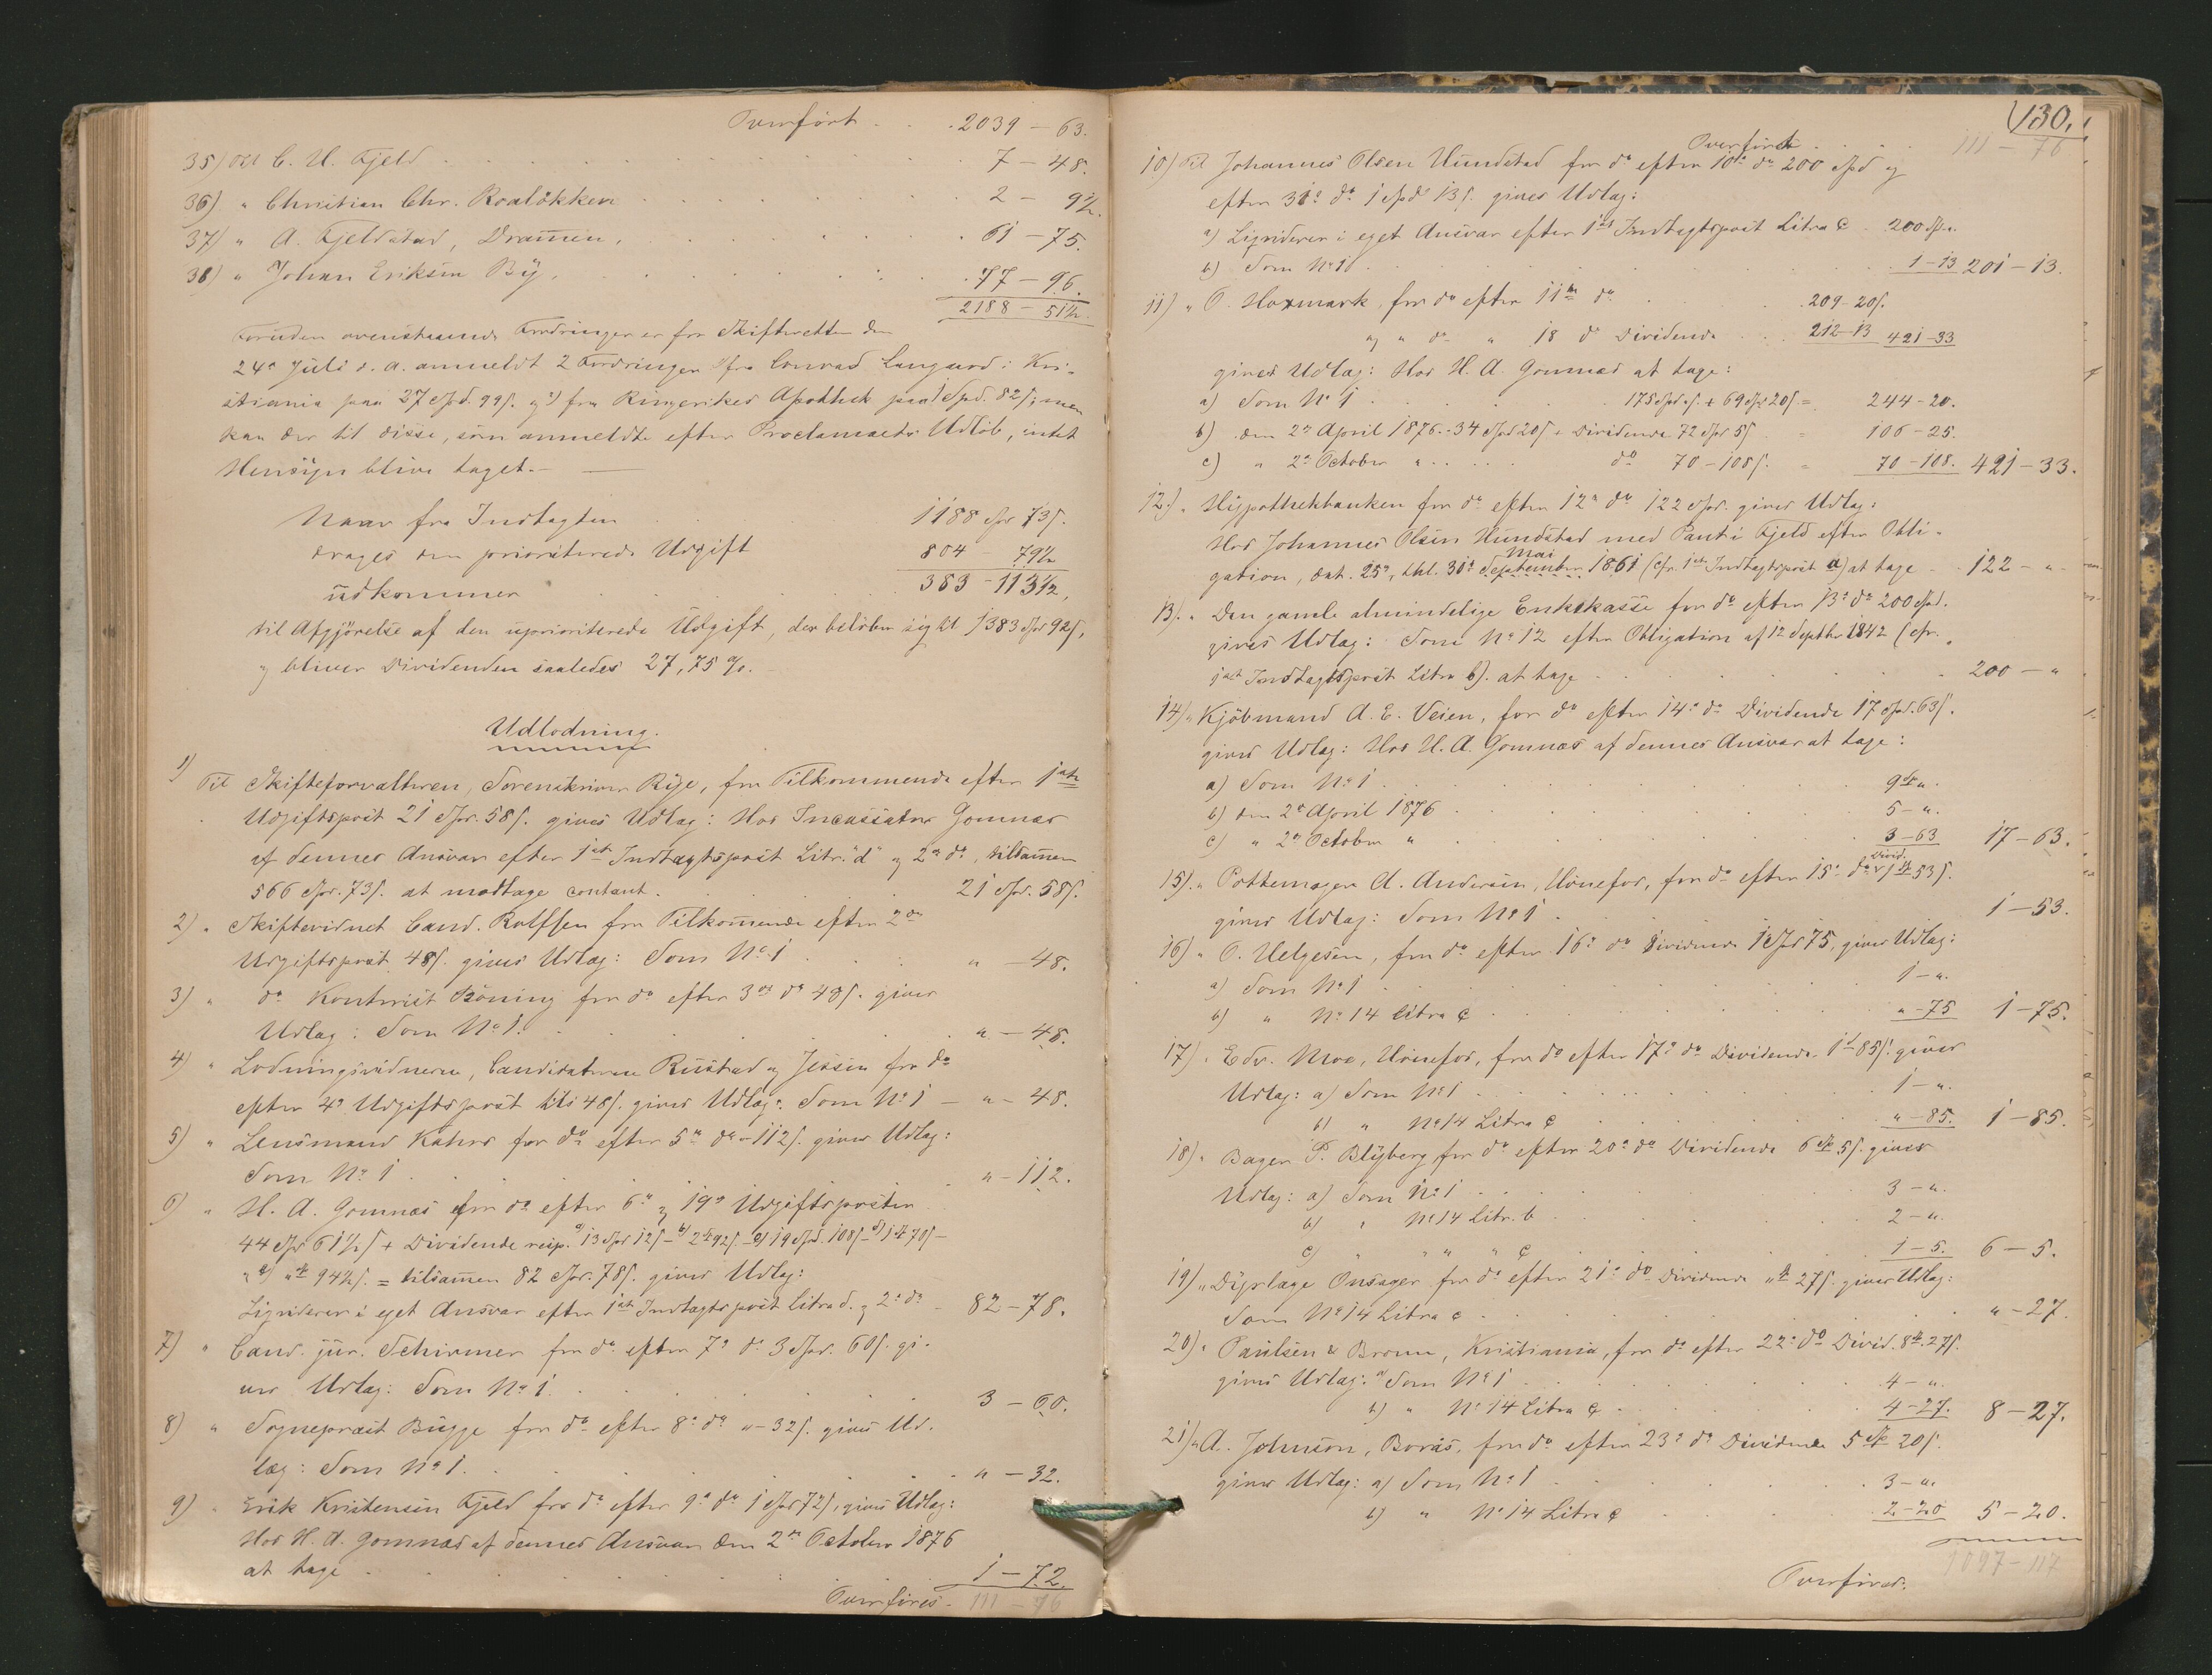 Overført . . . 2039 – 63.
35) Til C. U. Fjeld . . . 7 – 48.
36) " Christian Chr. Roaløkken . . . 2 – 9½.
37) " A. Fjeldstad, Drammen, . . . 61 – 75.
38) " Johan Eriksen By, . . . 77 – 96.
2188 – 51½.
Foruden ovenstaaende Fordringer er for Skifteretten den
24de Juli d. a. anmeldt 2 Fordringer fra Conrad Langaard i Kri-
stiania paa 27 Spd. 99 s. og 2) fra Ringerikes Apothek paa 1 Spd. 82 s; men
kan der til disse, som anmeldte efter Proclamaets Udløb, intet
Hensyn blive taget. —
Naar fra Indtægten . . . 1188 Spd 73 s.
drages den prioriterede Udgift . . . 804 – 79½
udkommer . . . 383 – 113½,
til Afgjørelse af den uprioriterede Udgift, der beløber sig til 1383 Spd 92 s,
og bliver Dividenden saaledes 27,75 %.
Udlodning.
1) Til Skifteforvalteren, Sorenskriver Rye, for Tilkommende efter 1ste
Udgiftspost 21 Spd. 58 s. gives Udlæg: Hos Incassator Gomnæs
af dennes Ansvar efter 1ste Indtægtspost Litr. "d" og 2den do, tilsammen
566 Spd. 73 s. at modtage contant. . . . 21 Spd. 58 s.
2) " Skiftevidnet Cand. Rolffsen for Tilkommende efter 2den
Udgiftspost 48 s. gives Udlæg: Som No 1 . . . " – 48.
3) " do Kontorist Böning for do efter 3die do 48 s. gives
Udlæg: Som No 1. . . . " – 48.
4) " Lodningsvidnerne, Candidaterne Rustad og Jessen for do
efter 4de Udgiftspost tils 48 s. gives Udlæg: Som No 1 – " – 48.
5) " Lensmand Kahrs for do efter 5te do " – 112 s. gives Udlæg:
Som No 1 . . . " – 112.
6) " H. A. Gomnæs for do efter 6te og 19de Udgiftsposter
44 Spd 61½ s + Dividende resp. a) 13 Spd 12 s – b) 2 Spd 92 s – c) 19 Spd. 108 s – d) 1 Spd 70 s –
" e) " Spd 94½ s. = tilsammen 82 Spd. 78 s. gives Udlæg:
Liqviderer i eget Ansvar efter 1ste Indtægtspost Litra d. og 2den do – 82 – 78.
7) " Cand. jur. Schirmer for do efter 7de do 3 Spd. 60 s. gi-
ves Udlæg: Som No 1. . . . 3 – 60.
8) " Sogneprest Bugge for do efter 8de do " – 32 s. gives Ud-
læg: Som No 1. . . . " – 32.
9) " Erik Kristensen Fjeld for do efter 9de do 1 Spd 72 s, gives Udlæg:
Hos H. A. Gomnæs af dennes Ansvar den 2den October 1876
at tage . . . 1 – 72.
Overføres. 111 – 76
130.
Overført . . . 111 – 76
10) Til Johannes Olsen Hundstad for do efter 10de do 200 Spd og
efter 31te do 1 Spd 13 s. gives Udlæg:
a) Liqviderer i eget Ansvar efter 1ste Indtægtspost Litra c . 200 Spd ".
b) Som No 1 . . . 1 – 13 201 – 13.
11) " O. Hoxmark, for do efter 11te do . . . 209 – 20 s.
og " do " 18 do Dividende . . . 212 – 13 421 – 33
gives Udlæg: Hos H. A. Gomnæs at tage:
a) Som No 1 . . . 175 Spd " s. + 69 Spd 20 s. = 244 – 20.
b) den 2den April 1876. – 34 Spd 20 s + Dividende 72 Spd 5 s = 106 – 25.
c) " 2den October " . . . do 70 – 108 s. = 70 – 108. 421 – 33.
12.) " Hypothekbanken for do efter 12te do 122 Spd. gives Udlæg:
Hos Johannes Olsen Hundstad med Pant i Fjeld efter Obli-
gation, dat. 25de, thl. 31te September Mai 1861 (cfr. 1ste Indtægtspost a) at tage . . 122 – "
13). " Den gamle almindelige Enkekasse for do efter 13de do 200 Spd.
gives Udlæg: Som No 12 efter Obligation af 12 Septbr 1842 (cfr.
1ste Indtægtspost Litra b). at tage . . . 200 – "
14) " Kjöbmand A. E. Veien, for do efter 14de do Dividende 17 Spd. 63 s.
gives Udlæg: Hos H. A. Gomnæs af dennes Ansvar at tage:
a) Som No 1 . . . 9 Spd ".
b) den 2den April 1876 . . . 5 – ".
c) " 2den October " . . . 3 – 63 17 – 63.
15). " Pottemager A. Andersen, Hönefos, for do efter 15de do Divid. 1 Spd 53 s.
gives Udlæg: Som No 1 . . . 1 – 53.
16) " O. Helgesen, for do efter 16de do Dividende 1 Spd 75, gives Udlæg:
a) Som No 1 . . . 1 – ".
b) " No 14 Litra c . . . " – 75 1 – 75.
17) " Edv. Moe, Hönefos, for do efter 17de do Dividende 1 Spd 85 s. gives
Udlæg: a) Som No 1 . . . 1 – ".
b) " No 14 Litra c . . . " – 85. 1 – 85.
18) " Bager P. Blyberg for do efter 20de do Dividende 6 Spd 5 s. gives
Udlæg: a) Som No 1 . . . 3 – ".
b) " No 14 Litr. b . . . 2 – ".
c) " " " " c . . . 1 – 5. 6 – 5.
19) " Dyrlæge Onsager for do efter 21de do Dividende " Spd 27 s. gives Udlæg:
Som No 14 Litra c . . . " – 27.
20) " Paulsen & Broun, Kristiania, for do efter 22de do Divid. 8 Spd. 27 s.
gives Udlæg: a) Som No 1 . . . 4 – ".
b) " No 14 Litra c . . . 4 – 27. 8 – 27.
21) " A. Johnson, Borås, for do efter 23de do Dividende 5 Spd 20 s.
gives Udlæg: a) Som No 1 . . . 3 – ".
b) " No 14 Litra c . . . 2 – 20 5 – 20.
1097 – 117
Overføres.